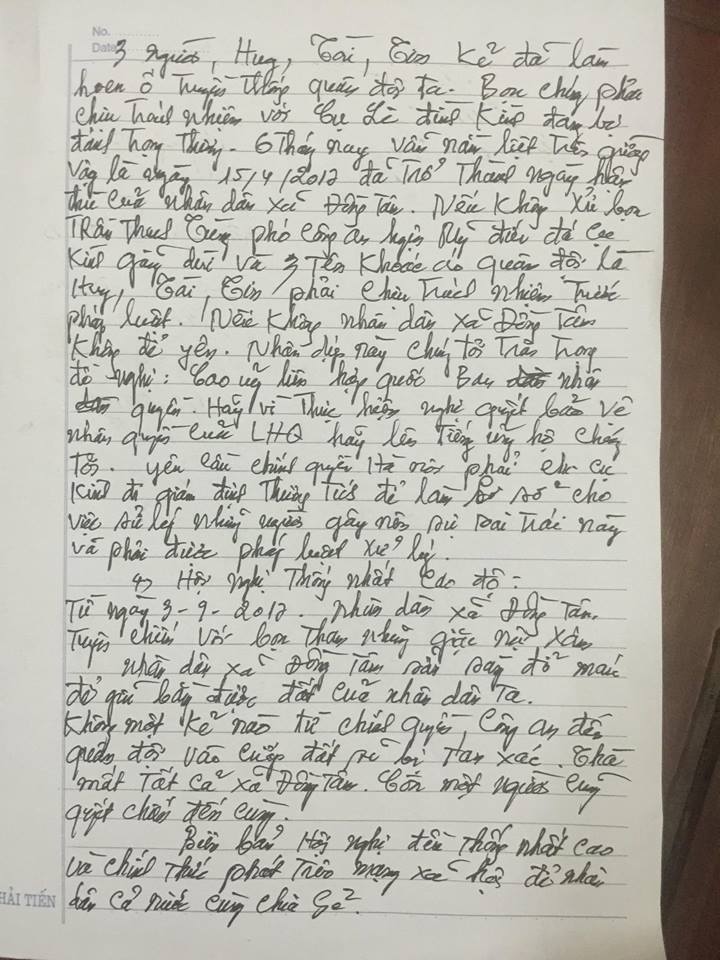 No.
Date
3 người, Huy, Tài, Tiến Kẻ đã làm
hoen ố Truyền Thống quân đội ta. Bọn chúng phải
chịu Trách nhiệm với Cụ Lê đình Kình đang bị
đánh Trọng Thương. 6 Tháng nay vẫn nằm liệt Trên giường
Vậy là ngày 15/4/2017 đã Trở Thành ngày hận
thù của nhân dân xã Đồng Tâm. Nếu Không xử bọn
TRần Thanh Tùng phó Công an huyện Mỹ đức đá Cụ
Kình gãy đùi và 3 Tên Khoác áo quân đội là
Huy, Tài, phải chịu Trách nhiệm Trước
pháp luật. Nếu Không nhân dân xã Đồng Tâm
Không để yên. Nhân dịp này chúng tôi Trân Trọng
đề nghị: Cao uỷ liên hợp quốc Ban nhân
quyền. Hãy vì Thực hiện nghị quyết bảo vệ
nhân quyền của LHQ hãy lên Tiếng ủng hộ chúng
Tôi. yêu cầu chính quyền Hà nội phải cho cụ
Kình đi giám định Thương Tích để làm cơ sở cho
việc sử lý những người gây nên sự sai Trái này
và phải được pháp luật xử lý.
4, Hội nghị Thống nhất cao độ:
Từ ngày 3-9-2017. nhân dân xã Đồng Tâm.
Tuyên chiến với bọn Tham nhũng giặc nội xâm
nhân dân xã Đồng Tâm sẵn sàng đổ máu
để giữ bằng được đất của nhân dân Ta.
Không một Kẻ nào từ chính quyền, Công an đến
quân đội vào cướp đất sẽ bị Tan xác. Thà
mất Tất cả xã Đồng Tâm. Còn một người cũng
quyết chiến đến cùng.
Biên bản Hội nghị đều Thống nhất cao
và chính Thức phát Trên mạng xã hội để nhân
dân cả nước cùng chia sẻ.
HẢI TIẾN